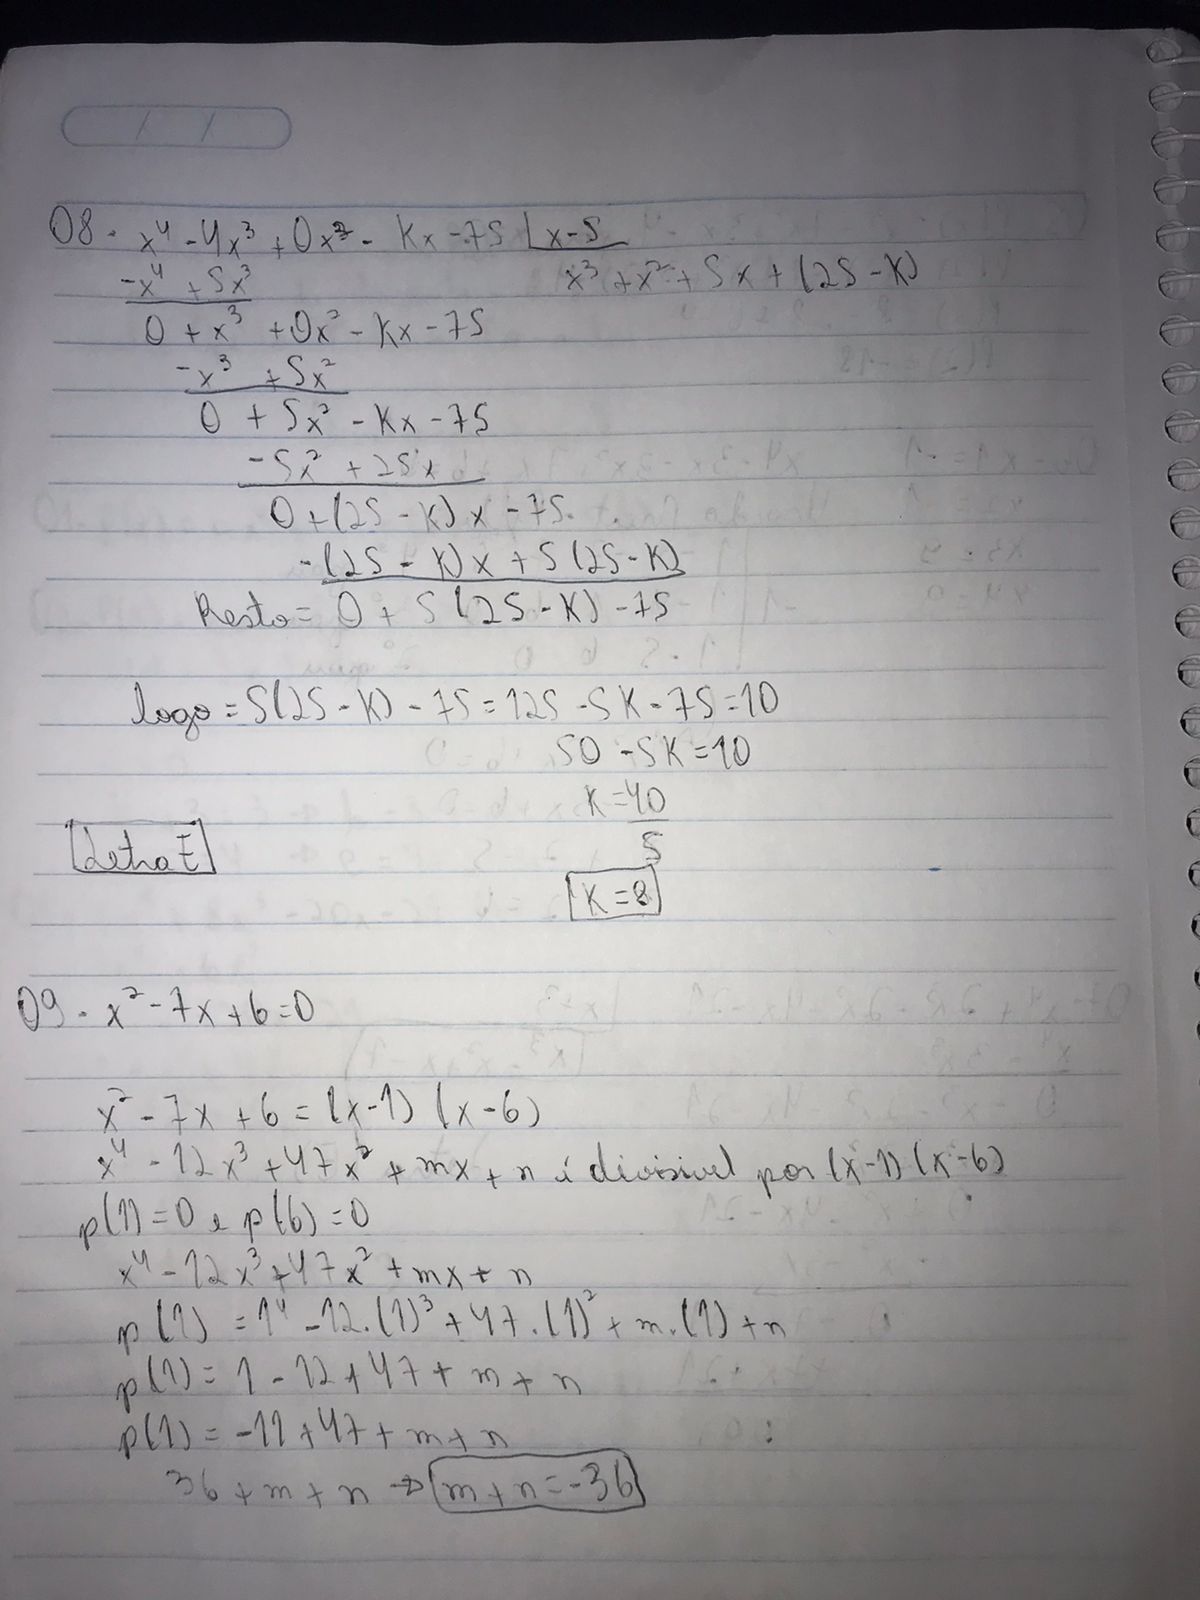 08. x⁴ - 4x³ + 0x² - Kx - 75 | x - 5
-x⁴ + 5x³ x³ + x² + 5x + (25 - K)
0 + x³ + 0x² - Kx - 75
-x³ + 5x²
0 + 5x² - Kx - 75
-5x² + 25x
0 + (25 - K)x - 75
-(25 - K)x + 5(25 - K)
Resto = 0 + 5(25 - K) - 75
logo = 5(25 - K) - 75 = 125 - 5K - 75 = 10
50 - 5K = 10
K = 40
5
Letra E
K = 8
09. x² - 7x + 6 = 0
x² - 7x + 6 = (x-1) (x-6)
x⁴ - 12x³ + 47x² + mx + n é divisivel por (x-1) (x-6)
p(1) = 0 e p(6) = 0
x⁴ - 12x³ + 47x² + mx + n
p(1) = 1⁴ - 12.(1)³ + 47.(1)² + m.(1) + n
p(1) = 1 - 12 + 47 + m + n
p(1) = -11 + 47 + m + n
36 + m + n → m + n = -36